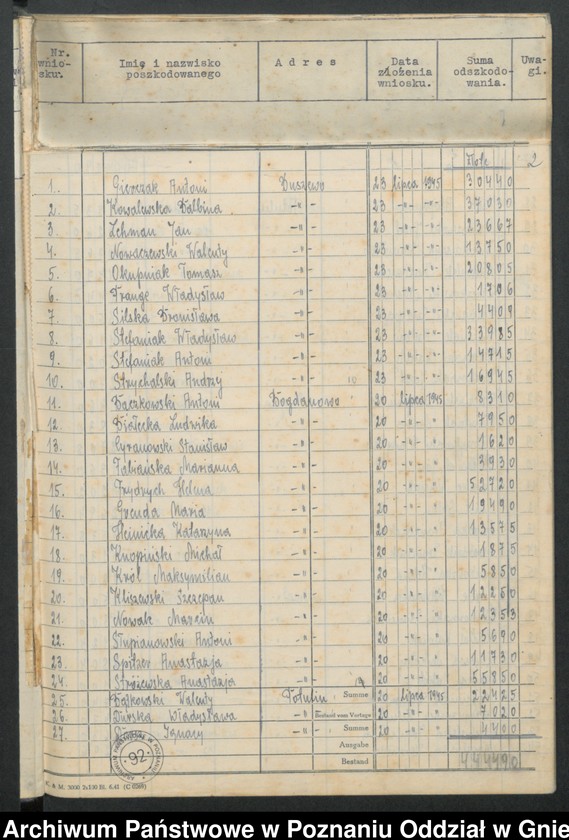 Nr. wnio- sku. Imię i nazwisko poszkodowanego Adres Data złożenia wniosku. Suma odszkodo- wania. Uwa- gi.
2
1. Gierczak Antoni 23 lipca 1945 30440
2. Kowalewska Balbina -"- 23 -"- -"- 37030
3. Lehman Jan -"- 23 -"- -"- 23667
4. Nowaczewski Walenty -"- 23 -"- -"- 13750
5. Okupniak Tomasz -"- 23 -"- " 20805
6. Prange Władysław -"- 23 -"- " 1706
7. Silska Bronisława -"- 23 -"- " 4409
8. Stefaniak Władysław -"- 23 -"- " 33985
9. Stefaniak Antoni -"- 23 -"- " 14715
10. Strychalski Andrzy -"- 23 -"- " 16945
11. Baczkowski Antoni Bogdanowo 20 lipca 1945 8310
12. Białecka Ludwika -"- 20 -"- " 7950
13. Cyranowski Stanisław -"- 20 -"- " 1620
14. Fabiańska Marianna -"- 20 -"- " 3930
15. Frydrych Helena -"- 20 -"- " 52720
16. Maria -"- 20 -"- " 19490
17. Heinicka Katarzyna -"- 20 -"- " 13575
18. Knopiński Michał -"- 20 -"- " 1875
19. Król Maksymilian -"- 20 -"- " 5850
20. Kliszewski Szczepan -"- 20 -"- " 12250
21. Nowak Marcin -"- 20 -"- " 12353
22. Słupianowski Antoni -"- 20 -"- " 5690
23. Spitzer Anastazja -"- 20 -"- " 11730
24. Stróżewska Anastazja -"- 20 -"- " 55850
25. Bątkowski Walenty Potulin Summe 20 lipca 1945 22425
26. Burska Władysława -"- Bestand vom Vortage 20 -"- " 7020
27. Ignacy -"- Summe 20 -"- " 4400
Ausgabe
Bestand 444490
ARCHIWUM PAŃSTWOWE W POZNANIU
92
K. & M. 3000 2x100 Bl. 6.41 (C 0269)
Archiwum Państwowe w Poznaniu Oddział w Gnie